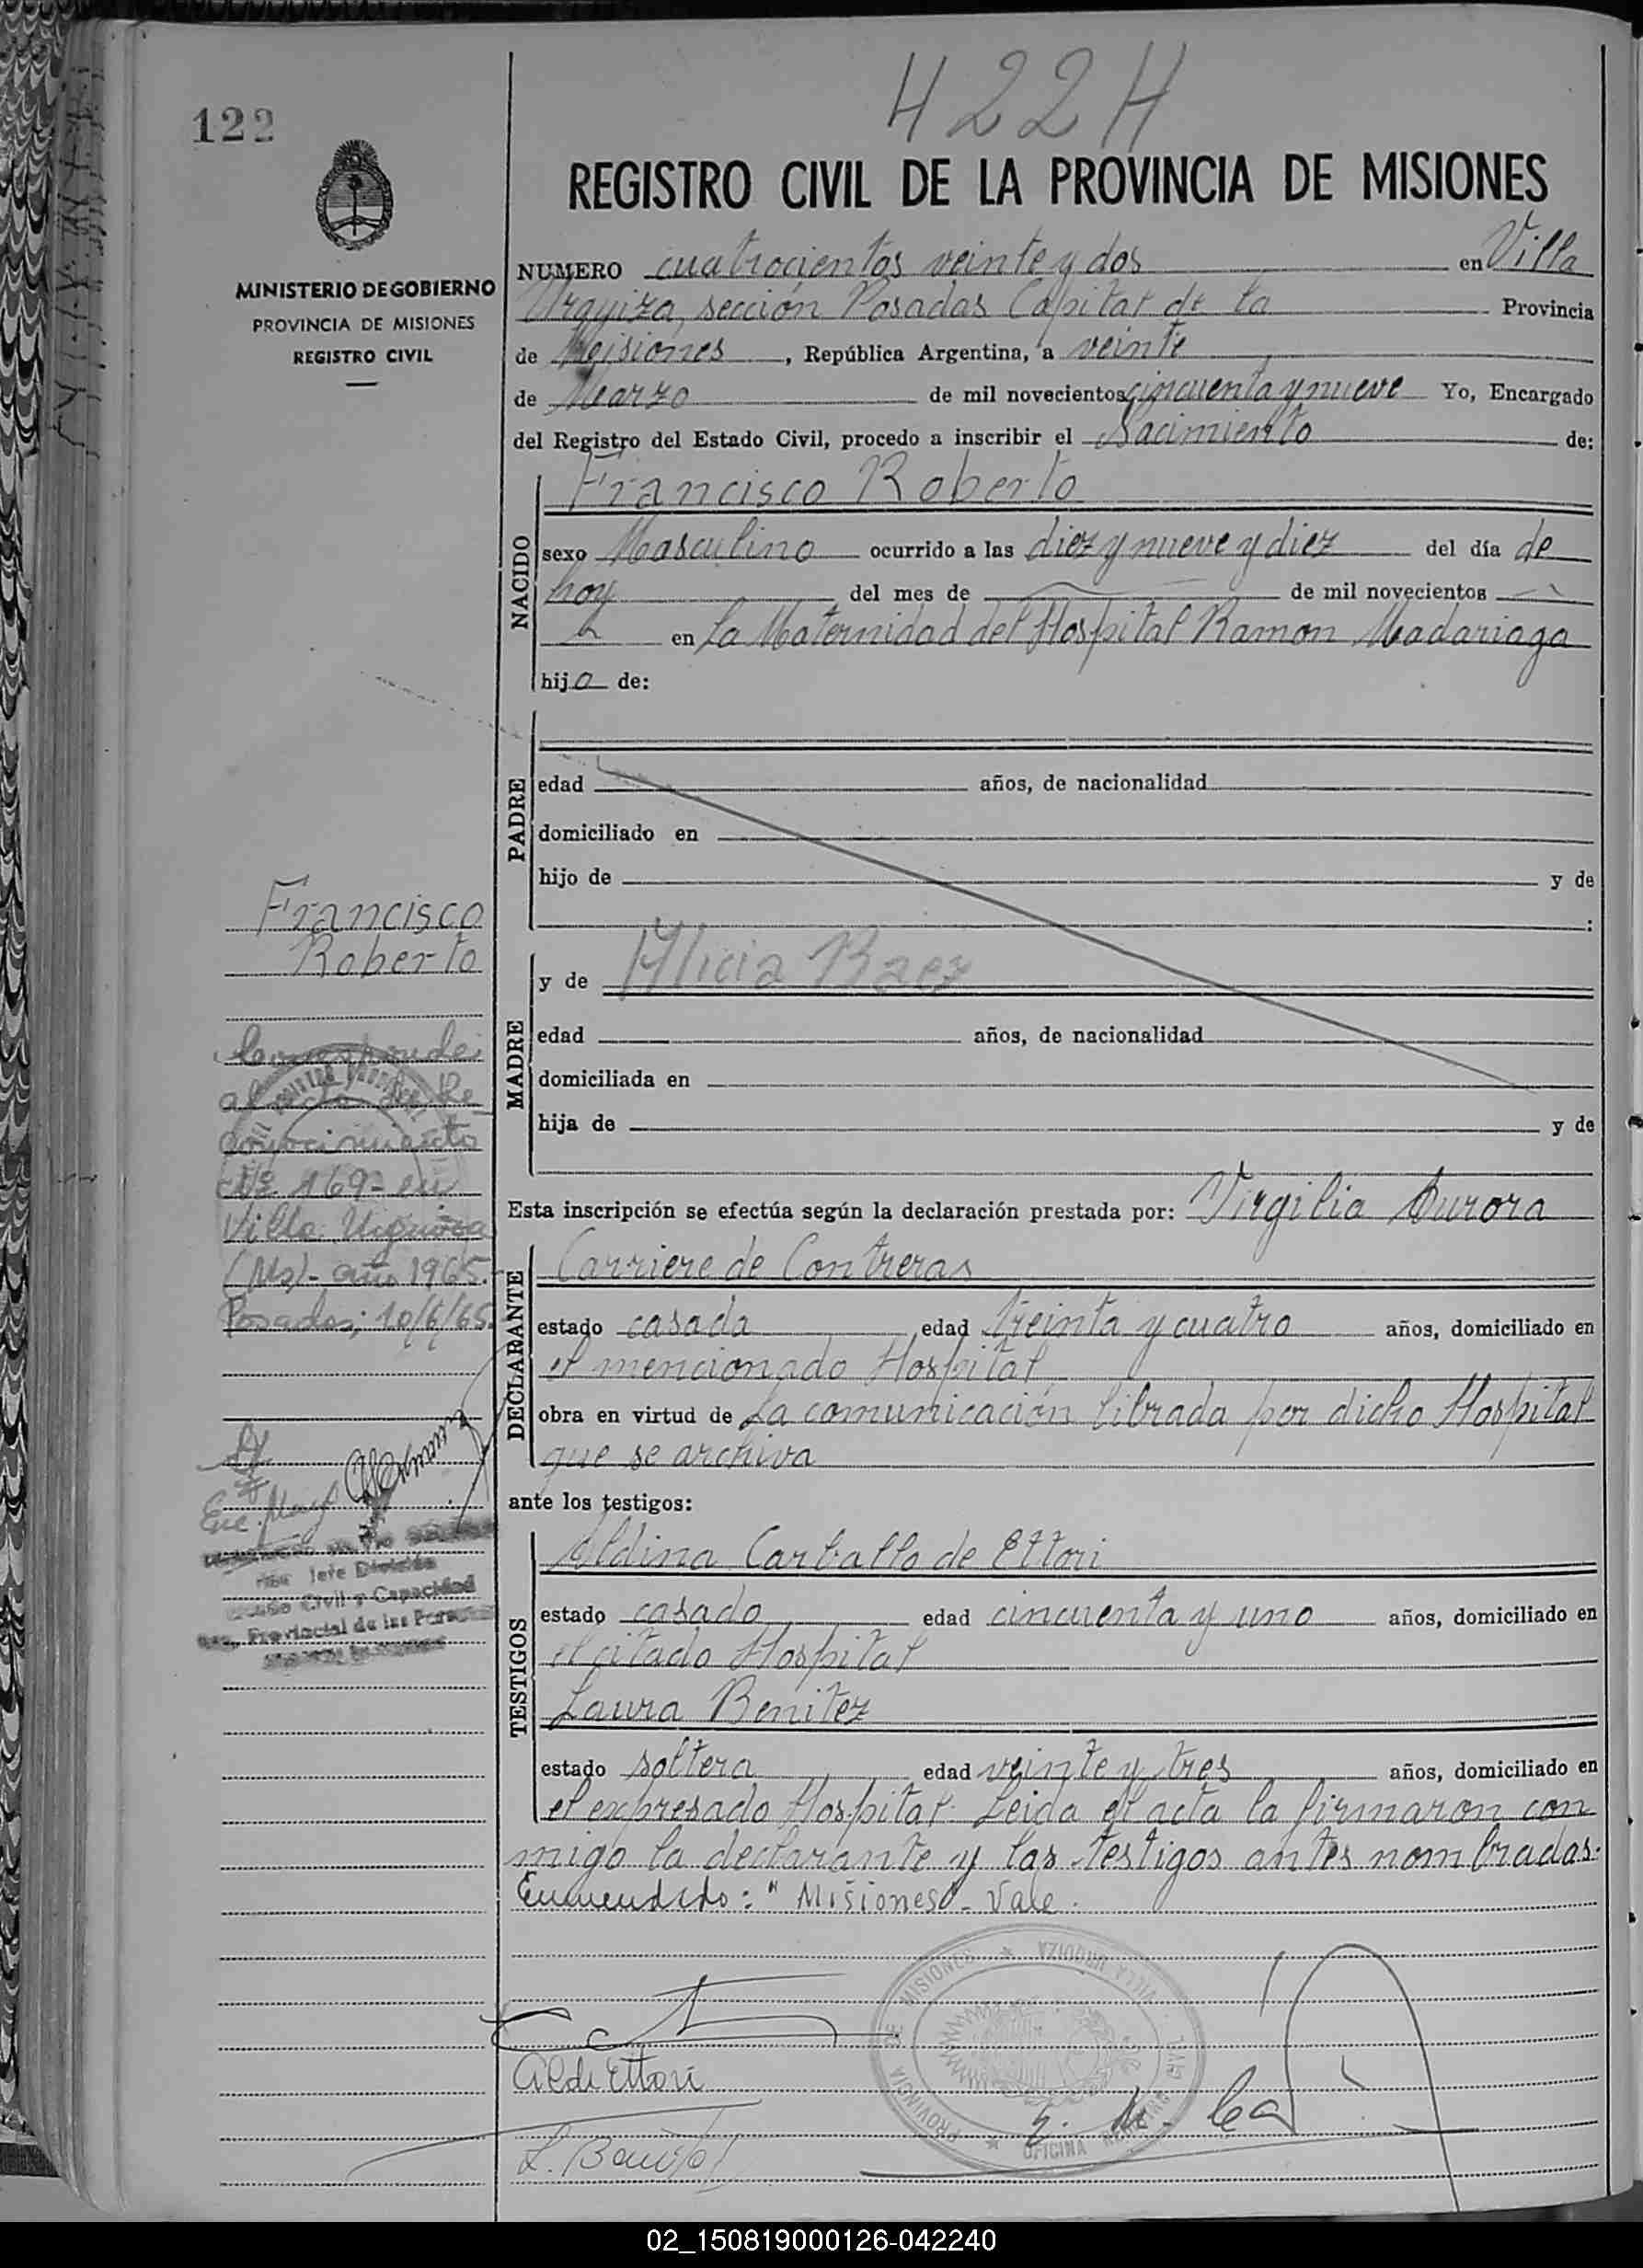 422 H
122
REGISTRO CIVIL DE LA PROVINCIA DE MISIONES
MINISTERIO DE GOBIERNO
PROVINCIA DE MISIONES
REGISTRO CIVIL
NUMERO cuatrocientos veinte y dos en Villa
Urquiza, sección Posadas Capital de la Provincia
de Misiones, República Argentina, a veinte
de Marzo de mil novecientos cincuenta y nueve Yo, Encargado
del Registro del Estado Civil, procedo a inscribir el Nacimiento de:
NACIDO
Francisco Roberto
sexo Masculino ocurrido a las diez y nueve y diez del día de
hoy del mes de de mil novecientos
en La Maternidad del Hospital Ramon Madariaga
hijo de:
PADRE
edad años, de nacionalidad
domiciliado en
hijo de y de
:
MADRE
y de Alicia Baez
edad años, de nacionalidad
domiciliada en
hija de y de
Francisco
Roberto
Corresponde
al acta de Re
conocimiento
Nº 169= en
Villa Urquiza
(Ms)- año 1965.
Posadas; 10/6/65.
Enc. Mayo
Jefe División
Civil y Capacidad
Provincial de las
Esta inscripción se efectúa según la declaración prestada por: Virgilia Aurora
DECLARANTE
Carriere de Contreras
estado casada edad treinta y cuatro años, domiciliado en
el mencionado Hospital
obra en virtud de La comunicación librada por dicho Hospital
que se archiva
ante los testigos:
TESTIGOS
Aldina Carballo de Ettori
estado casado edad cincuenta y uno años, domiciliado en
el citado Hospital
Laura Benitez
estado soltera edad veinte y tres años, domiciliado en
el expresado Hospital. Leida el acta la firmaron con
migo la declarante y las testigos antes nombradas.
Enmendado: "Misiones" - Vale.
PROVINCIA DE MISIONES VILLA URQUIZA CIVIL OFICINA
Ald. Ettori
L. Benitez
02_150819000126-042240